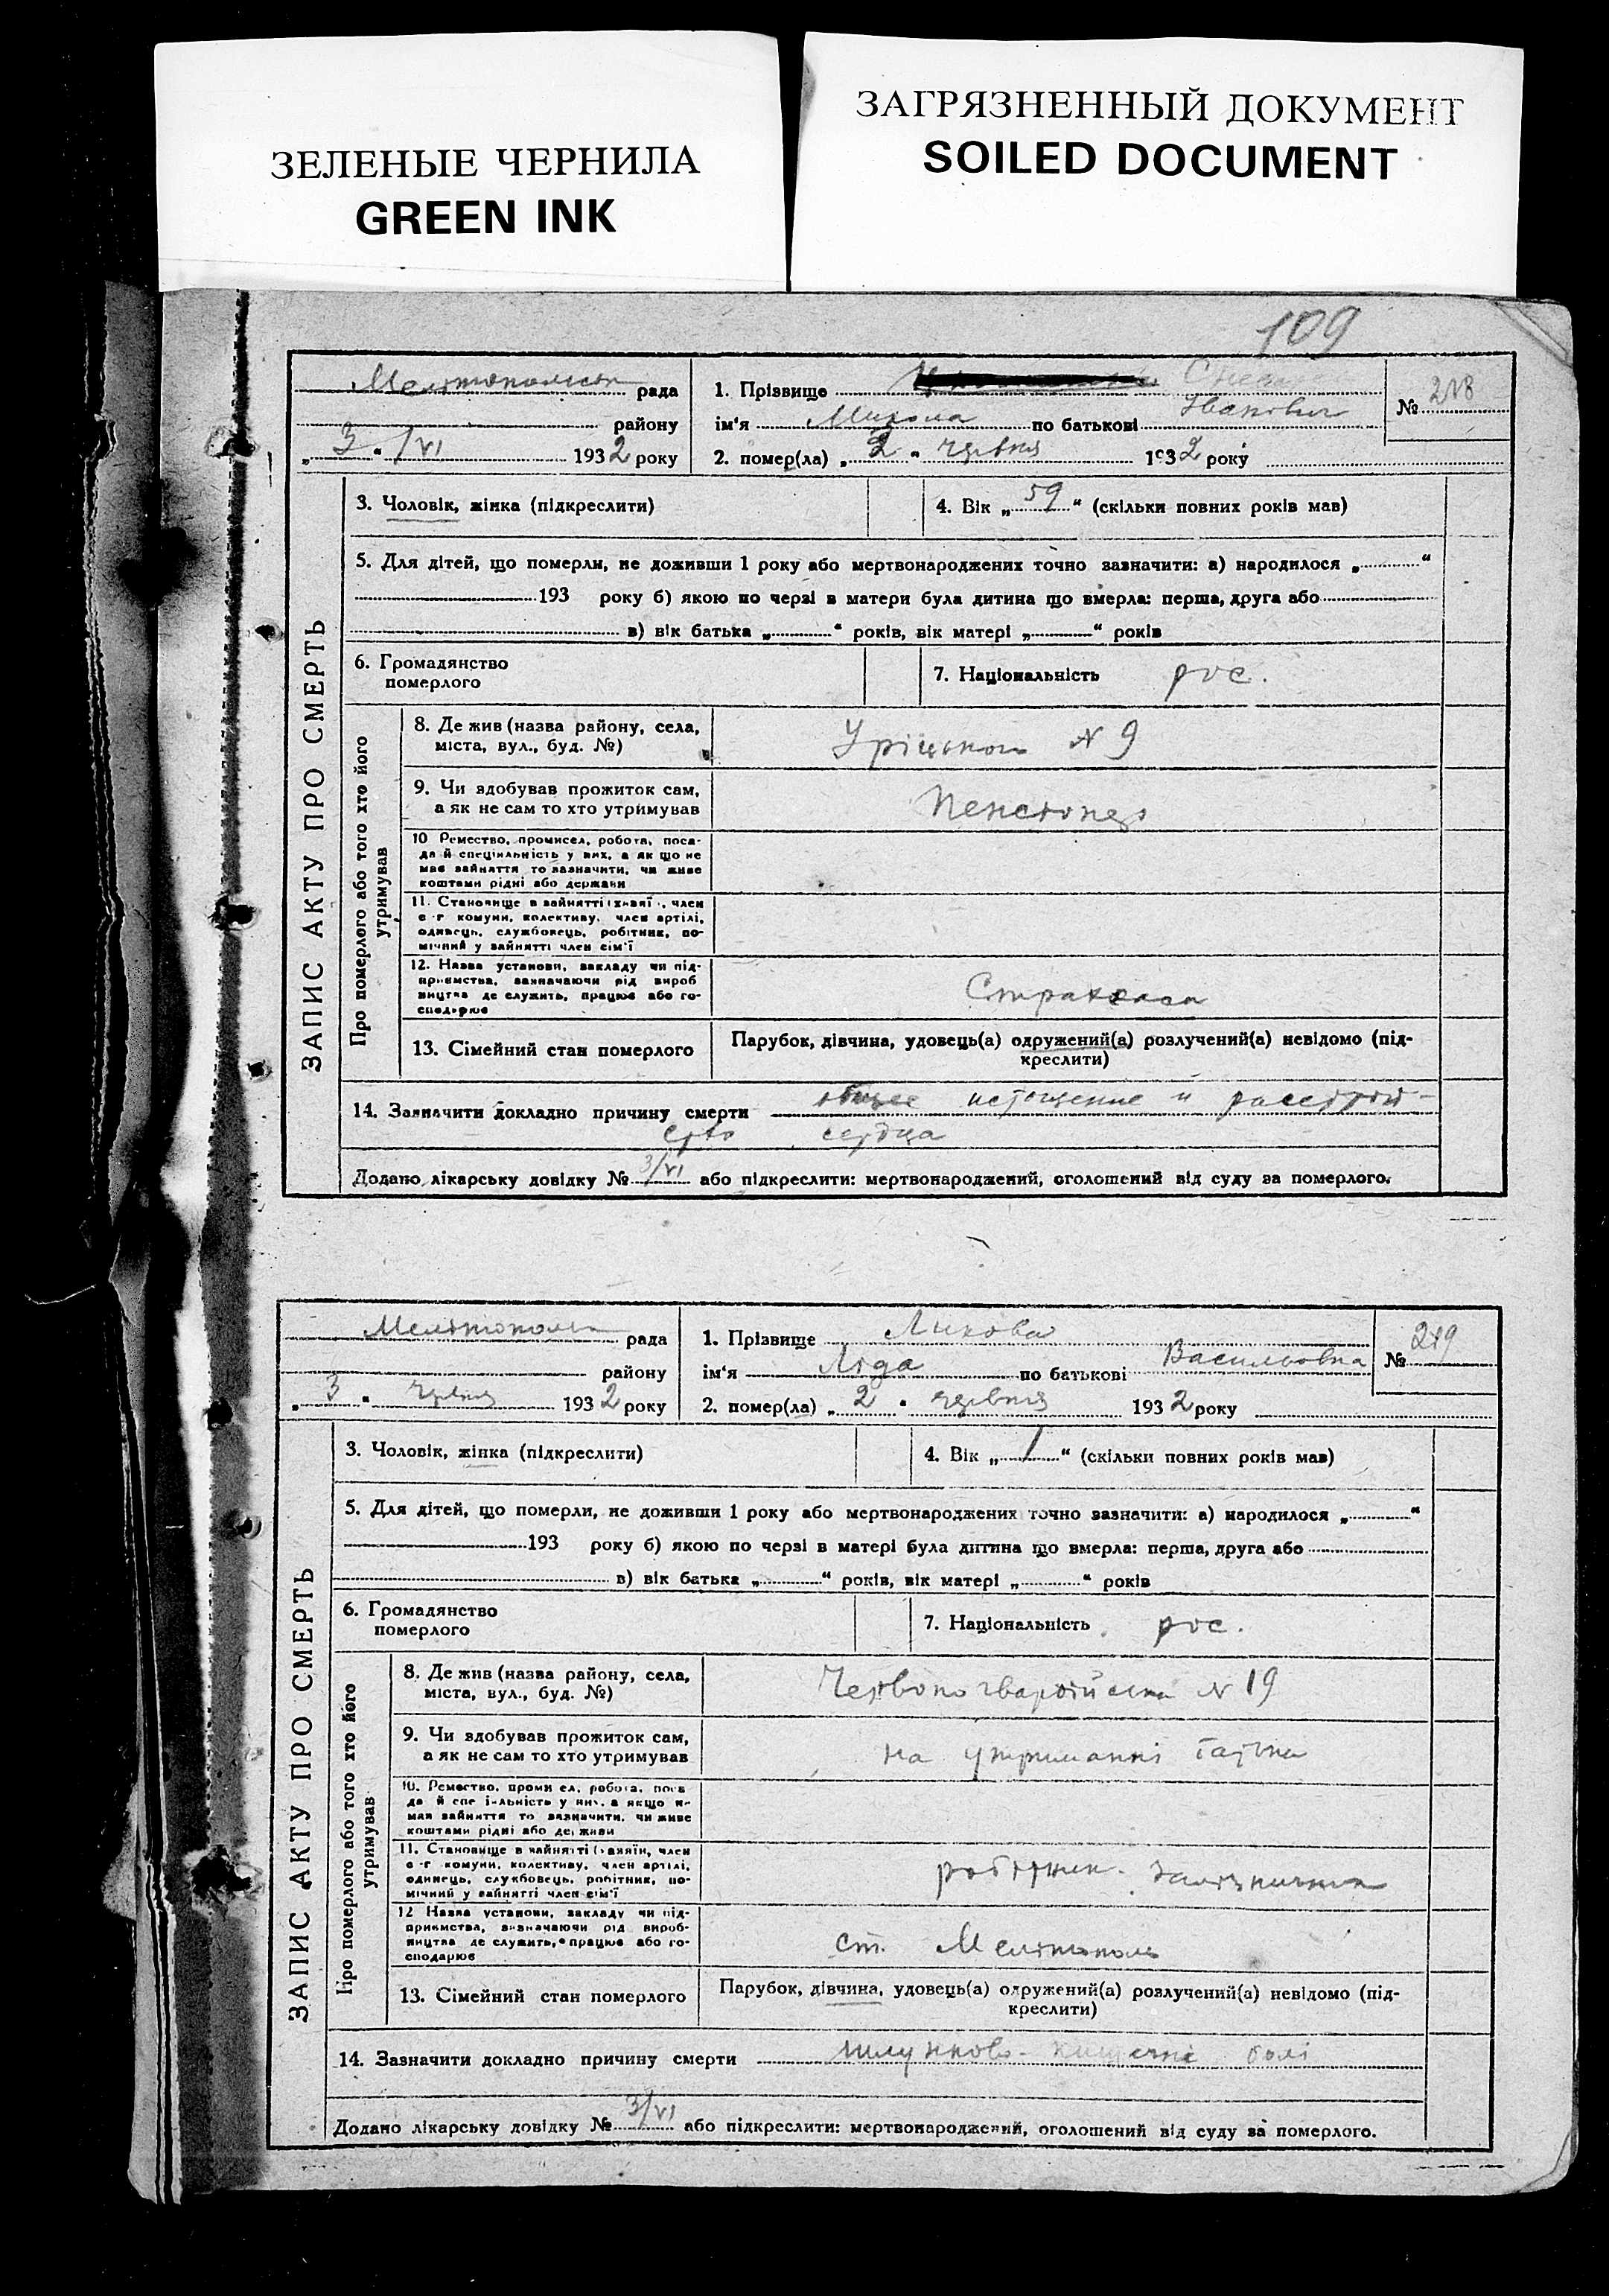 ЗЕЛЕНЫЕ ЧЕРНИЛА
GREEN INK
ЗАГРЯЗНЕННЫЙ ДОКУМЕНТ
SOILED DOCUMENT
109
рада
району
„ 3 “ /VI 1932 року
1. Прізвище
ім'я Микола по батькові Іванович
2. помер(ла) „ 2 “ червня 1932 року
№ 218
ЗАПИС АКТУ ПРО СМЕРТЬ
3. Чоловік, жінка (підкреслити)
4. Вік „ 59 “ (скільки повних років мав)
5. Для дітей, що померли, не доживши 1 року або мертвонароджених точно зазначити: а) народилося „ “
193 року б) якою по черзі в матери була дитина що вмерла: перша, друга або
в) вік батька „ “ років, вік матері „ “ років
6. Громадянство
померлого
7. Національність рос.
Про померлого або того хто його
утримував
8. Де жив (назва району, села,
міста, вул., буд. №)
Уріцького N 9
9. Чи здобував прожиток сам,
а як не сам то хто утримував
Пенсіонер
10 Ремество, промисел, робота, поса-
да й спеціяльність у них, а як що не
має зайняття то зазначити, чи живе
коштами рідні або держави
11. Становище в зайнятті член
с-г комуни, колективу, член артілі,
одинець, службовець, робітник, по-
мічний у зайнятті член сім'ї
12. Назва установи, закладу чи під-
приємства, зазначаючи рід вироб
ництва де служить, працює або го-
сподарює
Страхкаса
13. Сімейний стан померлого
Парубок, дівчина, удовець(а) одружений(а) розлучений(а) невідомо (під-
креслити)
14. Зазначити докладно причину смерти общее истощение и расстрой-
ство сердца
Додано лікарську довідку № 3/VI або підкреслити: мертвонароджений, оголошений від суду за померлого.
рада
району
„ 3 “ червня 1932 року
1. Прізвище Ликова
ім'я Ліда по батькові Васильовна
2. помер(ла) „ 2 “ червня 1932 року
№ 219
ЗАПИС АКТУ ПРО СМЕРТЬ
3. Чоловік, жінка (підкреслити)
4. Вік „ 1 “ (скільки повних років мав)
5. Для дітей, що померли, не доживши 1 року або мертвонароджених точно зазначити: а) народилося „ “
193 року б) якою по черзі в матері була дитина що вмерла: перша, друга або
в) вік батька „ “ років, вік матері „ “ років
6. Громадянство
померлого
7. Національність рос.
Про померлого або того хто його
утримував
8. Де жив (назва району, села,
міста, вул., буд. №)
Червоногвардійська N 19
9. Чи здобував прожиток сам,
а як не сам то хто утримував
на утриманні батька
10. Ремество, проми ел, робота, поса
да й спе і-льність у них, а якщо н-
має зайняття то зазначити, чи живе
коштами рідні або держави
11. Становище в зайнятті член
с-г комуни, колективу, член артілі,
одинець, службовець, робітник, по-
мічний у зайнятті член сім'ї
робітник. Залізнична
12 Назва установи, закладу чи під-
приємства, визначаючи рід вироб-
ництва де служить, працює або го-
сподарює
ст. Мелітополь
13. Сімейний стан померлого
Парубок, дівчина, удовець(а) одружений(а) розлучений(а) невідомо (під-
креслити)
14. Зазначити докладно причину смерти шлунково-кишечні болі
Додано лікарську довідку № 3/VI або підкреслити: мертвонароджений, оголошений від суду за померлого.